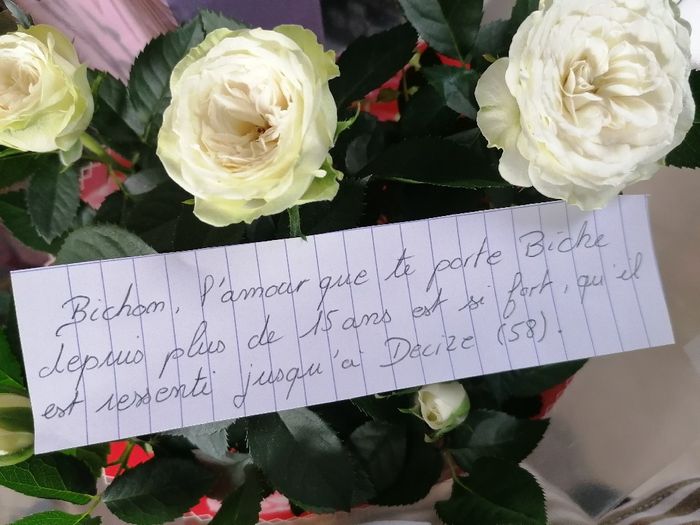 Bichon, l'amour que te porte Biche
depuis plus de 15 ans est si fort, qu'il
est ressenti jusqu'à Decize (58).